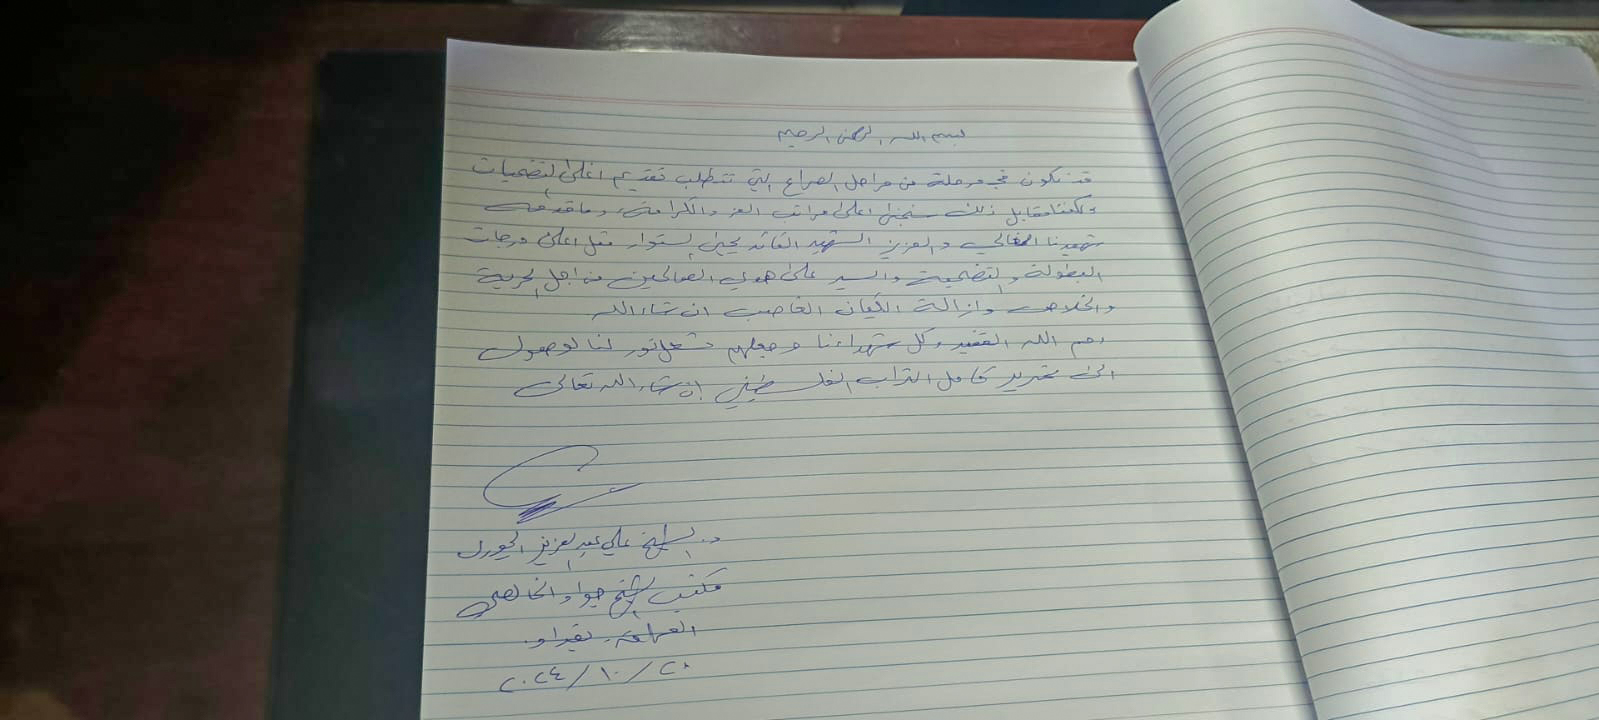 بسم الله الرحمن الرحيم
قد نكون في مرحلة من مراحل الصراع التي تتطلب تقديم اغلى التضحيات
ولكننا مقابل ذلك سنجني اعلى مراتب العز والكرامة، وما قدمه
شهيدنا الغالي والعزيز الشهيد القائد يحيى السنوار مثل اعلى درجات
البطولة والتضحية والسير على هدي الصالحين من اجل الحرية
والخلاص وازالة الكيان الغاصب ان شاء الله
رحم الله الفقيد وكل شهداءنا وجعلهم مشعل نور لنا لوصول
الى تحرير كامل التراب الفلسطيني ان شاء الله تعالى
د. الشيخ علي عبد العزيز الجبوري
مكتب الشيخ جواد الخالصي
العراق - بغداد.
٢٠٢٤/١٠/٢٠